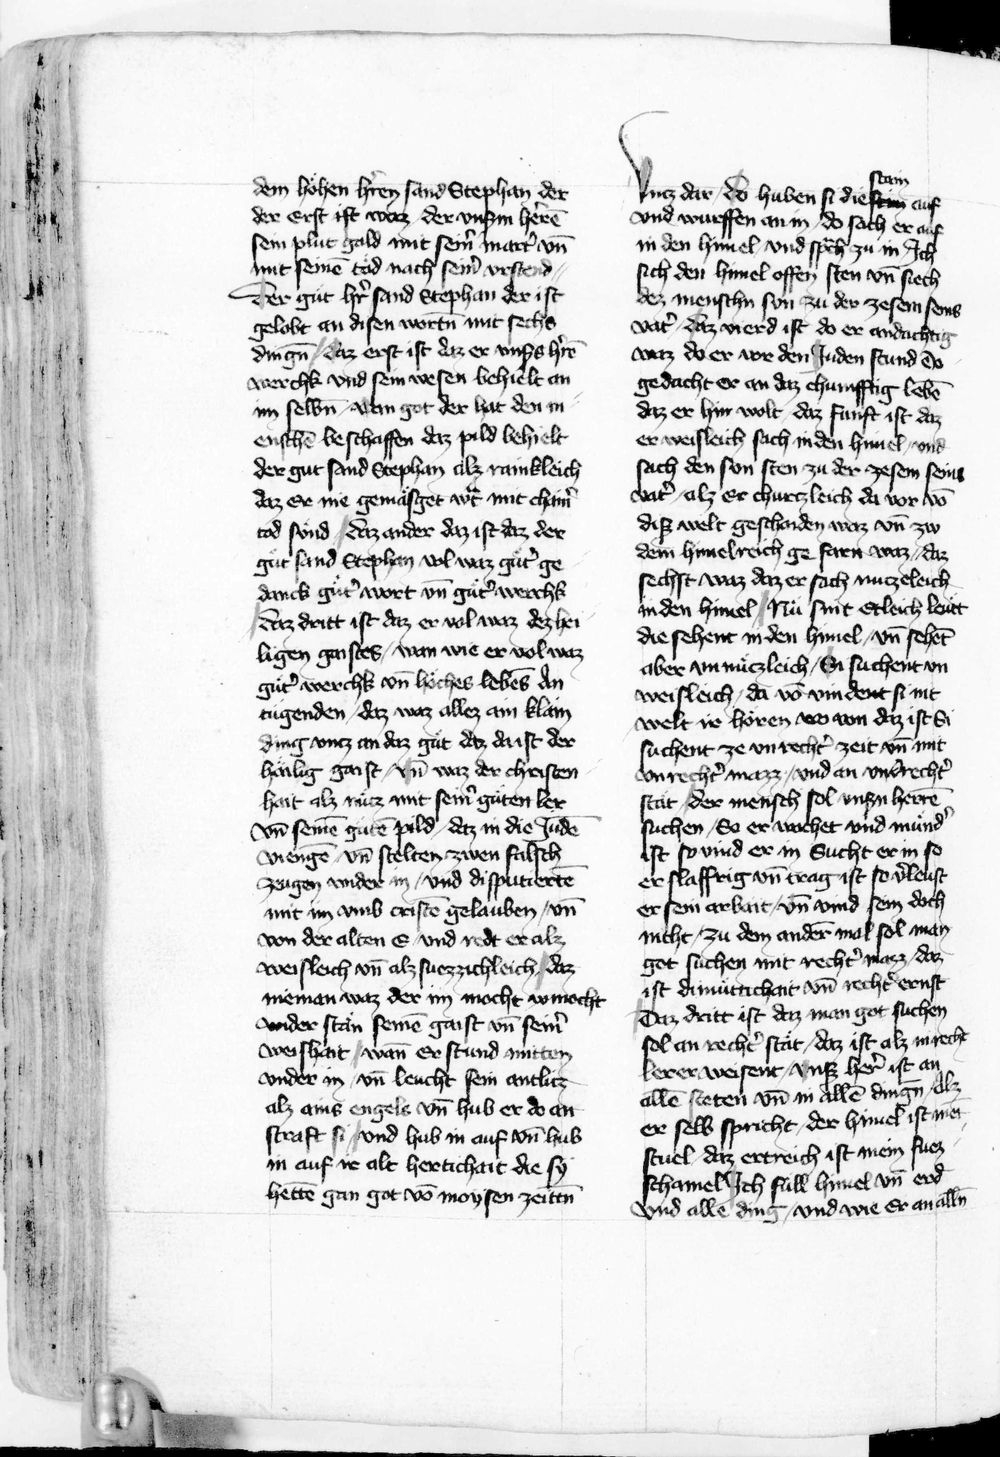 dem höhen hr̃en sand Stephan der
der erst ist waz / der vnßm her̃e
sein plüt gald mit seim̃ martr̃ vñ
mit seinẽ töd nach seim̃ vrstend
Der güt hr̃ sand Stephan der ist
gelobt an disen wortñ mit sechs
dingñ / Daz erst ist daz er vnsß hr̃e
werchk vnd sein wesen behielt an
im selbñ / wan got der hat den m
enschẽ beschaffen daz pild behielt
der gut sand Stephan alz rainkleich
daz Er nie gemäsget wᵗ mit chaim̃
tod sünd / Daz ander daz ist daz der
güt sand Stephan vol waz gütr̃ ge
danck gütr̃ wort vñ gütr̃ werchk
Daz dritt ist daz er vol waz dez hei
ligen gaistes / wan wie er vol waz
gütr̃ werchk vñ höches lebẽs An
tugenden / daz waz allez ain klain
ding vncz an daz güt daz da ist der
häilig gaist / vñ waz der christen
hait alz nücz mit seim̃ güten ler
vñ seinẽ gutẽ pild / daz in die Judẽ
viengẽ / vñ stelten zwen falsch
zeugen vnder in / vnd disputiertẽ
mit im vmb cristẽ gelauben / vñ
von der alten E / vnd redt er alz
weisleich vñ alz suezzichleich / daz
nieman waz der im mocht
wider stän seinẽ gaist vñ seim̃
weishait / wañ Er stund mitten
vnder in / vñ leucht sein antlitz
alz ains engels vñ hub er do an
straft si / vnd hub in auf vñ hub
in auf ir alt hertichait die sy
hettẽ gan got võ moysen zeittñ
Vncz dar / do huben si die stain auf
vnd wurffen an in / do sach er auf
in den himel / vnd sprͣch zu in Ich
sich den himel offen sten vñ siech
dez menschñ sün zu der zesem seins
vatr̃ / Daz vierd ist do er andächtig
waz do er vor den Juden stund Do
gedacht er an daz chunfftig lebẽ
daz er hin wolt / daz funft ist daz
er weisleich sach in den himel / vnd
sach den sün sten zu der zesem seins
vatr̃ / alz Er churczleich da vor võ
disß welt geschaiden waz vñ zw
dem himelreich ge farn waz / daz
sechst waz daz er sach nuczeleich
in den himel / Nü sint etleich leütt
die sehent in den himel / vñ sehẽt
aber vn nüczleich / Si suchent vn
weisleich / da võ vindent si nit
welt ir hören wo von daz ist Si
suchent ze vnrechtr̃ zeit vñ mit
vnrechtr̃ mazz / vnd an vnrechtr̃
stät / der mensch sol vnßn herrẽ
suchen / So er wachet vnd mündr̃
ist so vind er in Sucht er in so
er slaffrig vñ träg ist so vˀleust
er sein arbait / vñ vind sein doch
nicht / zu dem andern mal sol man
got suchen mit rechtr̃ mazz / daz
ist diemüttichait vñ rechtr̃ ernst
Daz dritt ist daz man got suchen
sol an rechtr̃ stät / daz ist alz in recht
lerer weisent / vnsß her̃ ist an
allẽ steten vñ in allẽ dingñ / Alz
er selb spricht / der himel ist mei
stuel / daz ertreich ist mein fuez
schamel Ich füll himel vñ erd
vnd alle ding / vnd wie Er an allñ